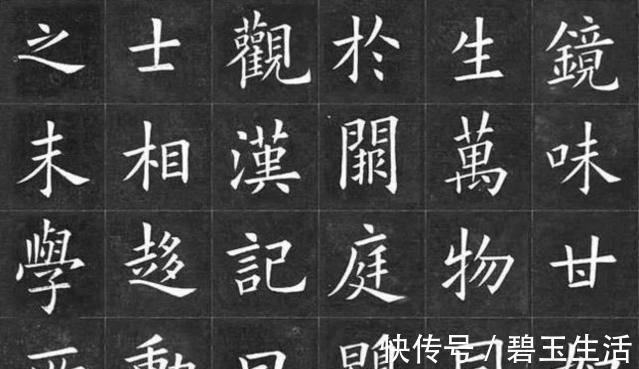 鏡味甘
生萬物
於庭
觀漢記
士相趍動
之末學
快传号 / 碧玉生活